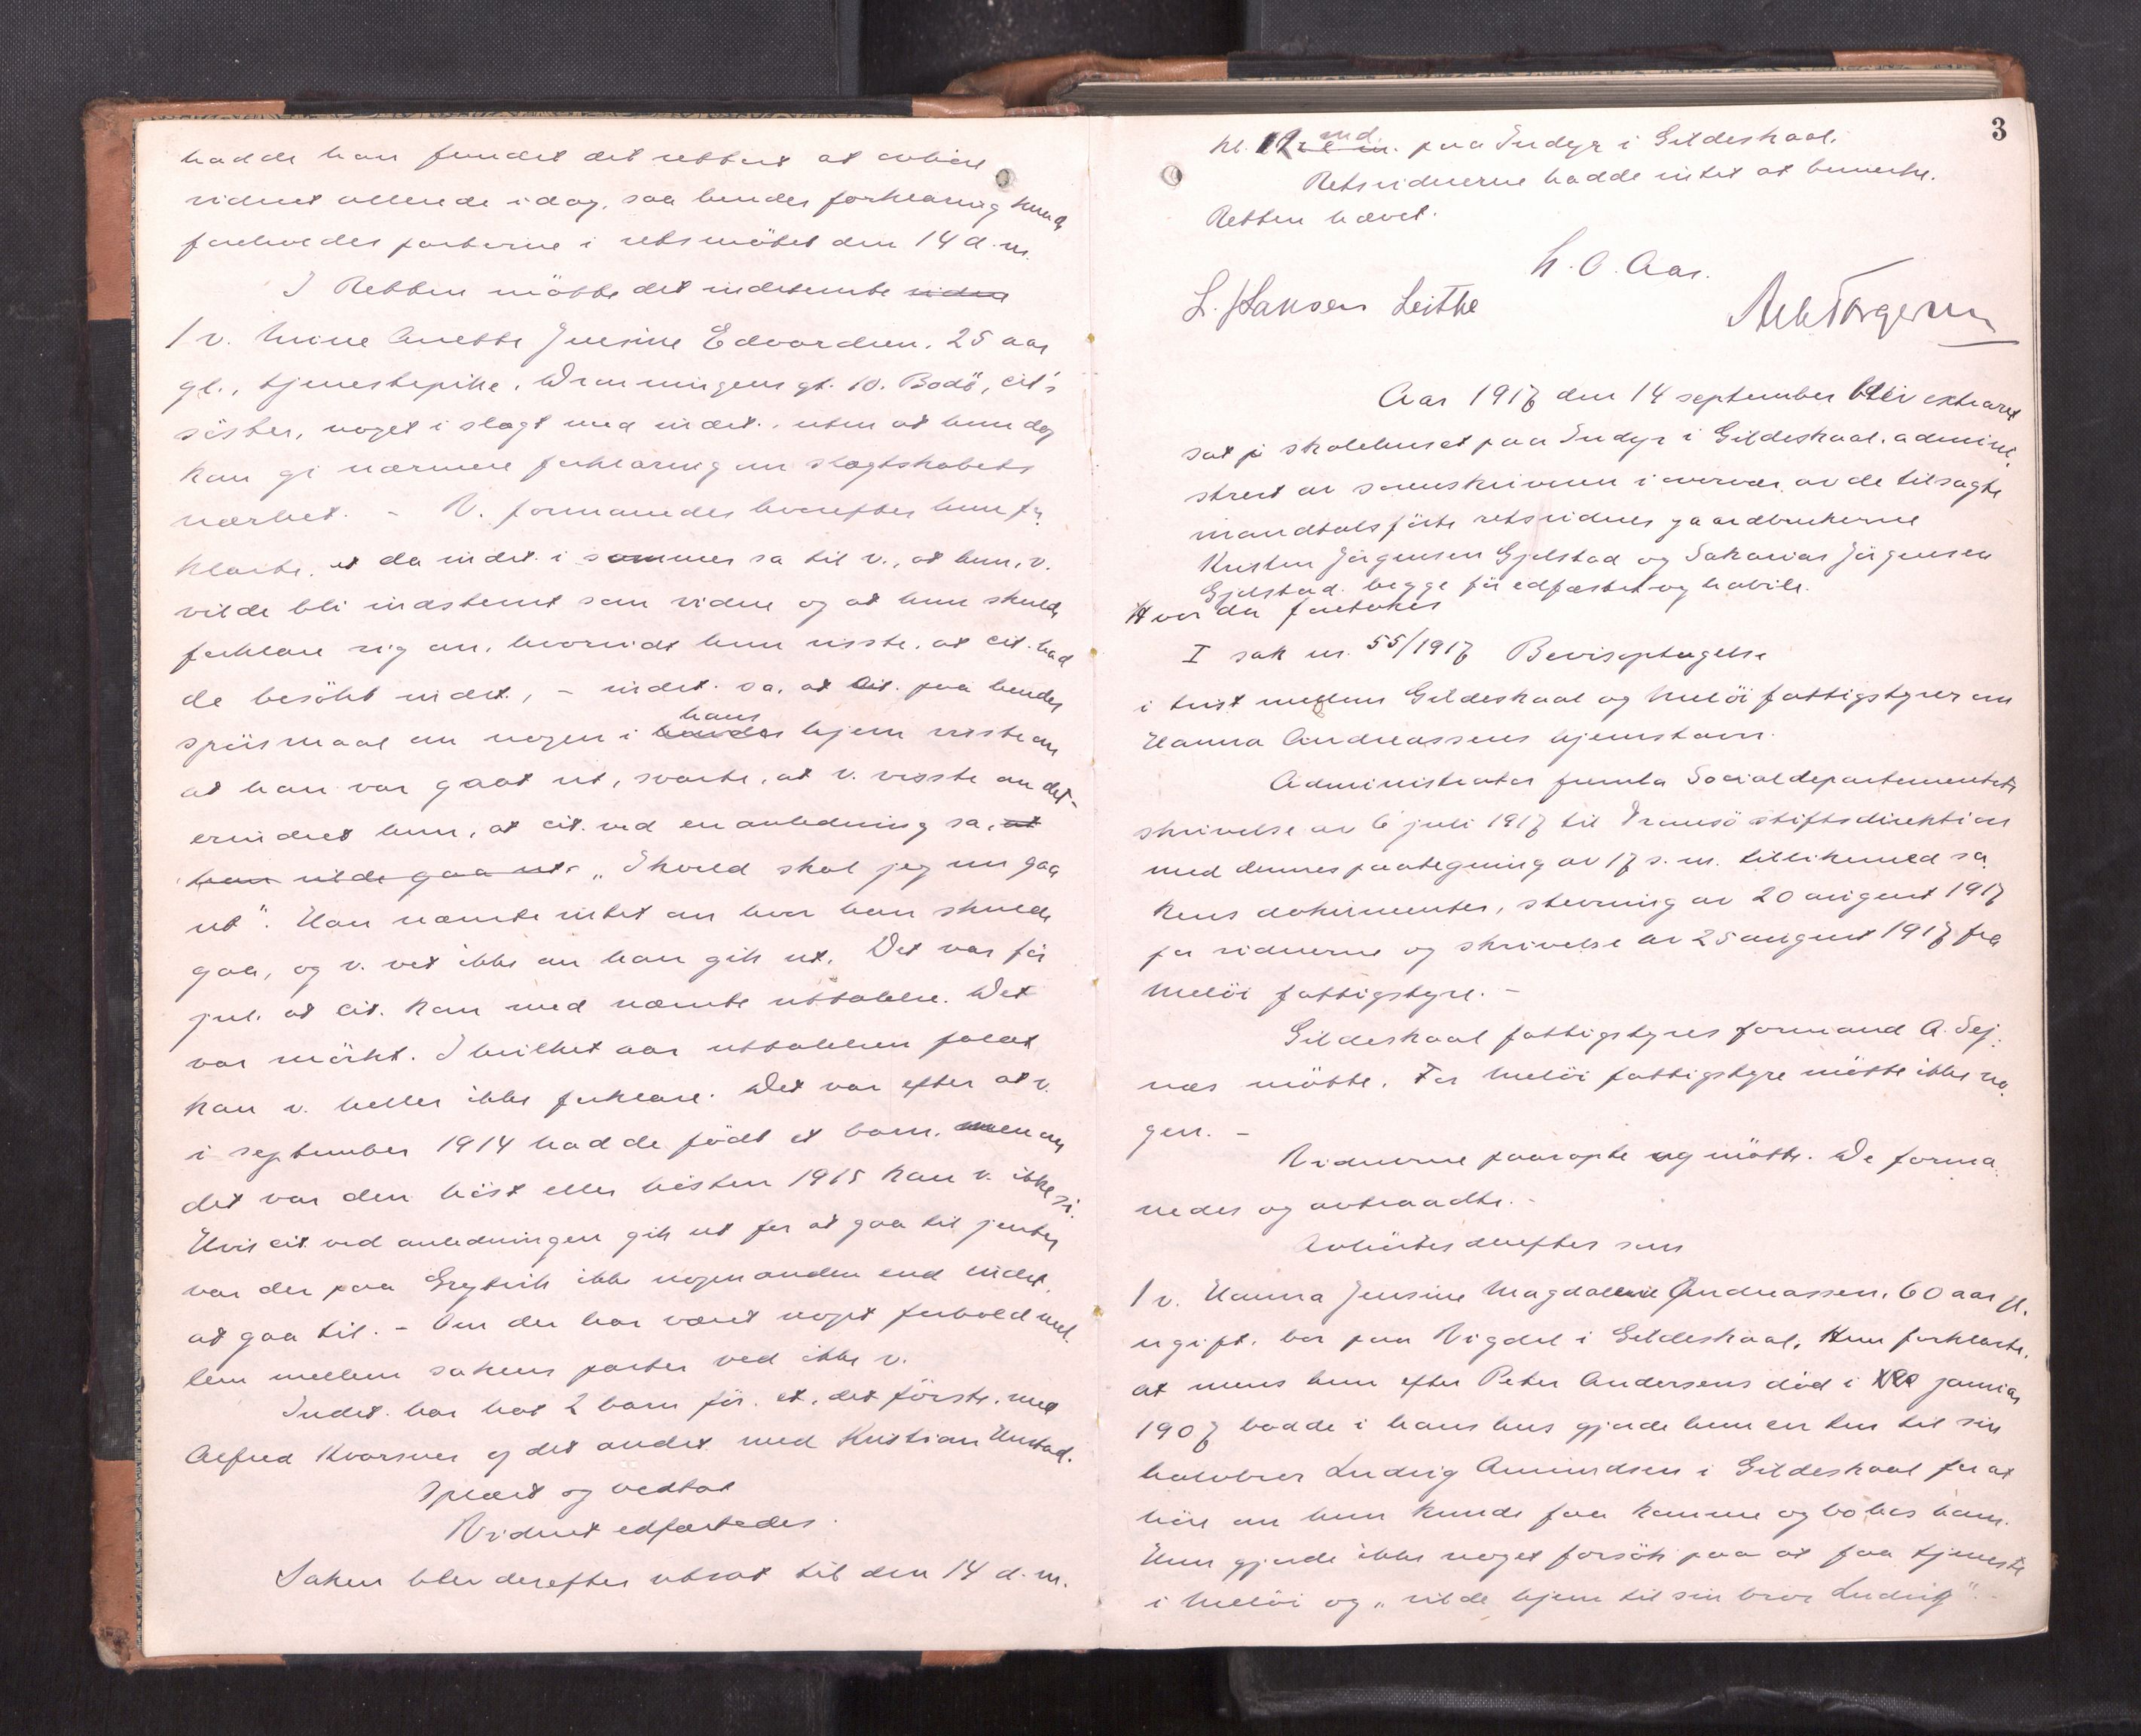 hadde han fundet det rettest at avhøre
vidnet allerede idag, saa hendes forklaring kunde
foreholdes parterne i retsmötet den 14 d. m.
I Retten mötte det indstevnte vidne
1 v. Anette Jensine Edvardsen, 25 aar
gl., tjenestepike, gt. 10. Bodö, cit's
söster, noget i slegt med indst., uten at hun dog
kan gi nærmere forklaring om slegtskabets
nærhet. - V. formanedes hvorefter hun for
klarte, at da indst. i sommer sa til v., at hun, v.
vilde bli indstevnt som vidne og at hun skulde
forklare sig om, hvorvidt hun visste, at cit. had
de besökt indst., - indst. sa, at cit. paa hendes
spörsmaal om nogen i hans hjem visste om
at han var gaat ut, svarte, at v. visste om det -
erindret hun, at cit. ved en anledning sa, at
han vilde gaa ut. „I kveld skal jeg nu gaa
ut". Han nævnte intet om hvor han skulde
gaa, og v. vet ikke om han gik ut. Det var för
jul, at cit. kom med nævnte uttalelse. Det
var mörkt. I hvilket aar uttalelsen faldt
kan v. heller ikke forklare. Det var efter at v.
i september 1914 hadde födt et barn, men om
det var den höst eller hösten 1915 kan v. ikke si.
Hvis cit. ved anledningen gik ut for at gaa til jenter
var der paa ikke nogen anden end indst.
at gaa til. - Om der har været noget forhold mel
lem mellem sakens parter ved ikke v.
Indst. har hat 2 barn för, et, det förste, med
Alfred Kvarsnes og det andet med Kristian
Oplæst og vedtat
Vidnet edfæstedes.
Saken blev derefter utsat til den 14 d. m.
3
kl. 12 md. paa Indyr i Gildeskaal.
Retsvidnerne hadde intet at bemerke.
Retten hævet.
H. O. Aar.
L. Hansen Leithe
Aar 1917 den 14 september blev extraret
sat på skolehuset paa Indyr i Gildeskaal, admini
strert av sorenskriveren i overvær av de tilsagte
mandtalsförte retsvidner gaardbrukerne
Kristen Jörgensen Gjelstad og Sakarias Jörgensen
Gjelstad, begge för edfæstet og habile.
Hvor da foretokes
I sak nr. 55/1917 Bevisoptagelse
i tvist mellem Gildeskaal og Melöi fattigstyrer om
Hanna Andreassens hjemstavn.
Administrator fremla Socialdepartementets
skrivelse av 6 juli 1917 til Tromsö stiftsdirektion
med dennes paategning av 17 s. m. tillikemed sa
kens dokumenter, stevning av 20 august 1917
for vidnerne og skrivelse av 25 august 1917 fra
Melöi fattigstyre. -
Gildeskaal fattigstyres formand A. Sej
næs mötte. For Melöi fattigstyre mötte ikke no
gen. -
Vidnerne paaropte og mötte. De forma
nedes og avtraadte. -
Avhörtes derefter som
1 v. Hanna Jensine Magdalene Andreassen, 60 aar gl.
ugift, bor paa Vigdel i Gildeskaal. Hun forklarte,
at mens hun efter Peter Andersens död i januar
1907 bodde i hans hus gjorde hun en tur til sin
halvbror Ludvig Amundsen i Gildeskaal for at
höre om hun kunde faa komme og bo hos ham.
Hun gjorde ikke noget forsök paa at faa tjeneste
i Melöi og „vilde hjem til sin bror Ludvig". -